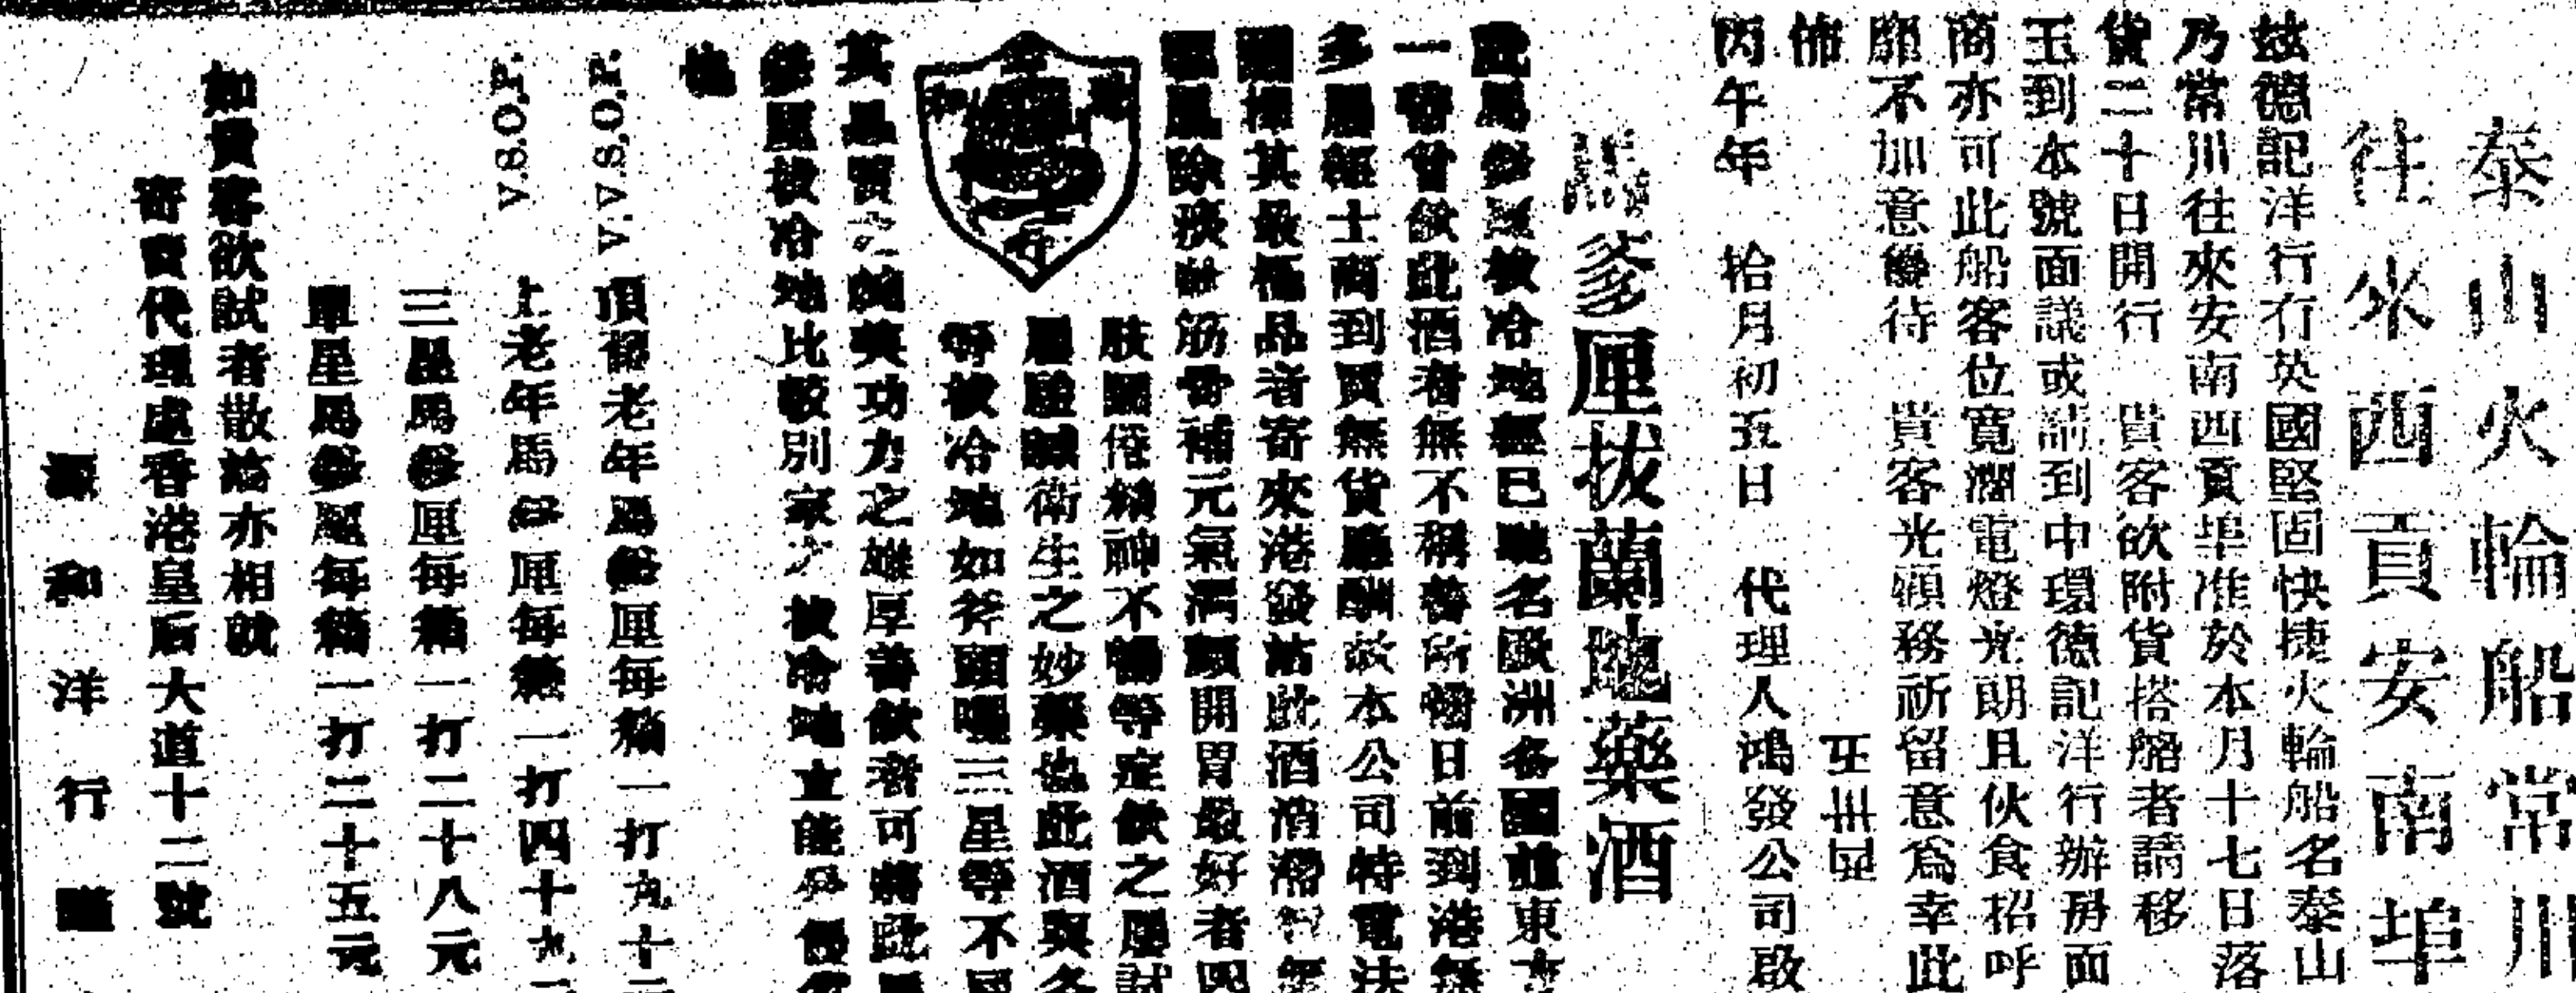 泰山火輪船常川
往來西貢安南埠
茲德記洋行有英國堅固快捷火輪船名泰山
乃常川往來安南西貢埠准於本月十七日落
貨二十日開行 貴客欲附貨搭船者請移
玉到本號面議或請到中環德記洋行辦房面
商亦可此船客位寬濶電燈光朗且伙食招呼
靡不加意優待 貴客光顧務祈留意爲幸此
佈
丙午年 拾月初五日 代理人鴻發公司啟
馬爹厘拔蘭地藥酒
此馬爹厘拔冷地經已馳名歐洲各國並東方
一帶曾飲此酒者無不稱善所惜日前到港無
多屢經士商到買無貨應酬故本公司特電法
國揀其最極品者寄來港發沽此酒消滯
驅風除痰 筋骨補元氣 開胃最好者四
肢 倦精神不暢等症飲之屢試
屢驗 衛生之妙藥也此酒與各
等拔冷地如斧頭嘜三星等不同
其 功力之雄厚善飲者可將此
爹厘拔冷地比較別家之拔冷地立能
也
V.V.S.O.P. 頂舊老年馬爹厘每箱一打九十
V.S.O.P. 上老年馬爹厘每箱一打四十九
三星馬爹厘每箱一打二十八元
單星馬爹厘每箱一打二十五元
如貴客欲試者散沽亦相就
寄賣代理處香港皇后大道十二號
和洋行